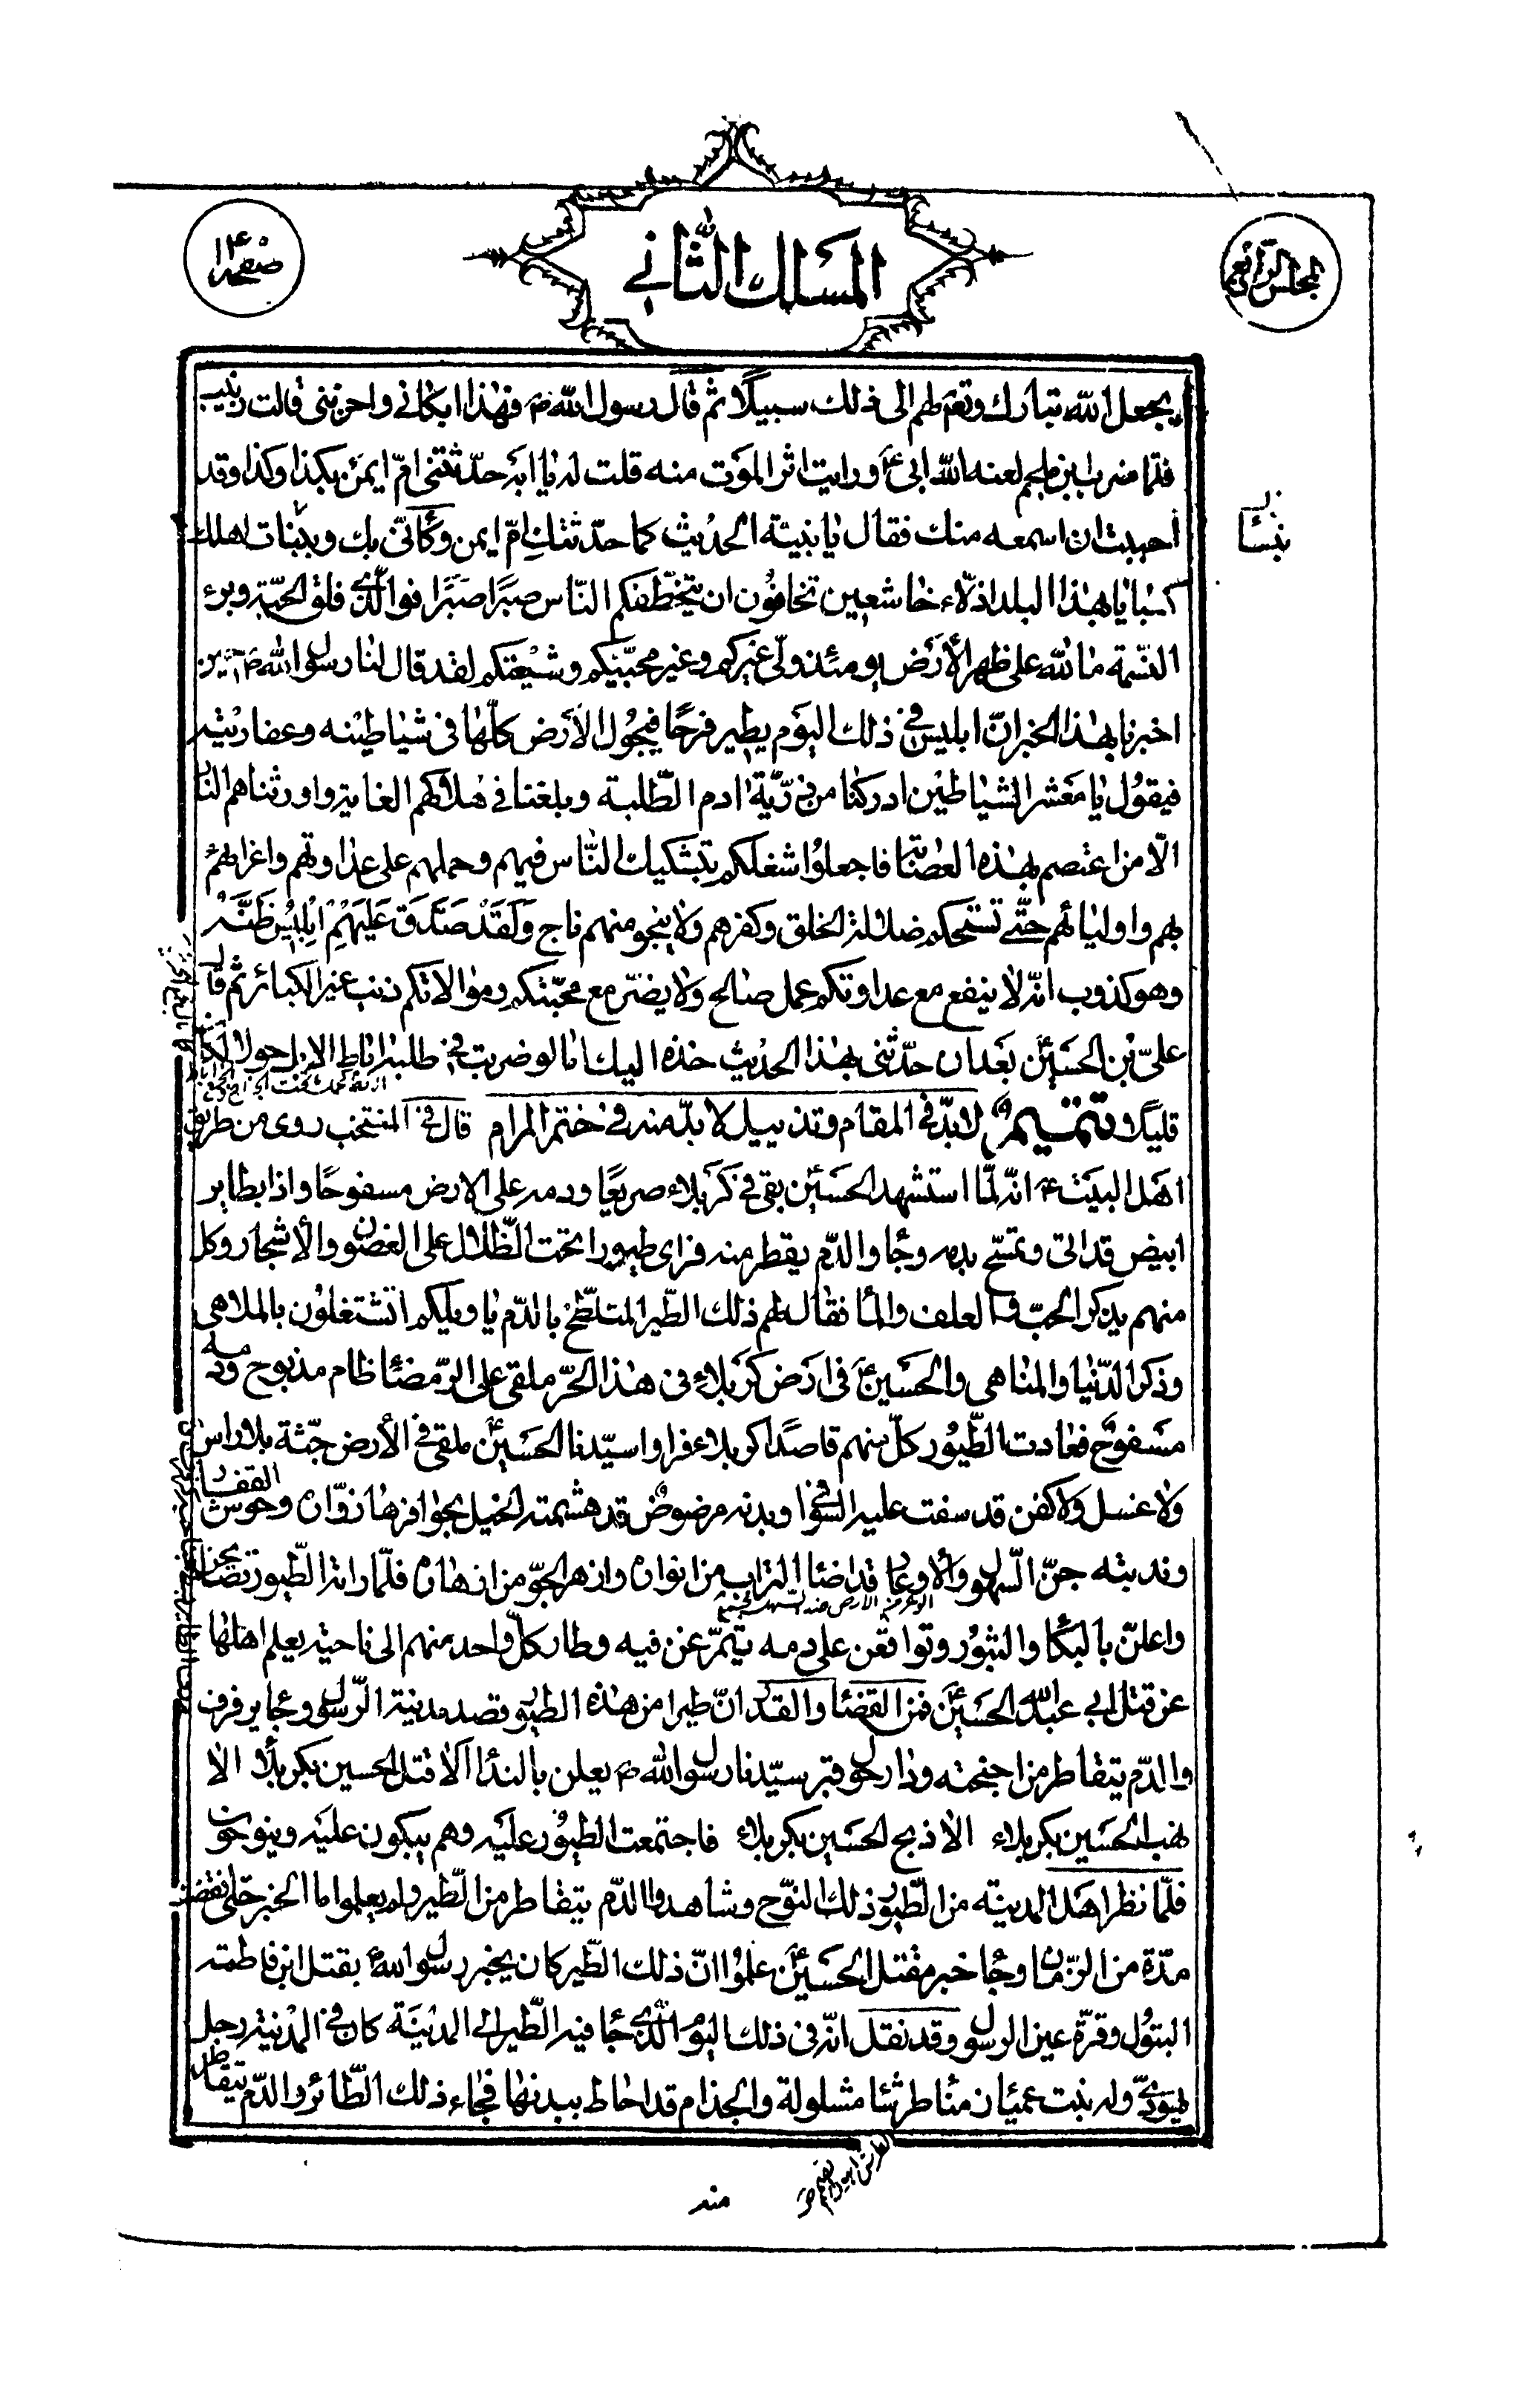 المجلس الرابع
المسلك الثاني
صفحه ١٤
يجعل الله تبارك وتعم لهم الى ذلك سبيلًا ثم قال رسول الله ص فهذا ابكاني واحزنني قالت زينب
فلما ضرب ابن ملجم لعنه الله ابي ع ورايت اثر الموت منه قلت له يا ابه حدثتني امّ ايمن بكذا وكذا وقد
احببت ان اسمعه منك فقال يا بنية الحديث كما حدّثتك امّ ايمن وكأنّي بك وببنات اهلك
نسآل
سبايا بهذا البلد اذلّاء خاشعين تخافون ان يتخطّفكم النّاس صبرًا صبرًا فوالّذي فلق الحبّة وبرء
النّسمة ما لله على ظهر الأرض يومئذ وليّ غيركم وغير محبّيكم وشيعتكم لقد قال لنا رسول الله ص حين
اخبرنا بهذا الخبر انّ ابليس في ذلك اليوم يطير فرحًا فيجول الأرض كلّها في شياطينه وعفاريته
فيقول يا معشر الشياطين ادركنا من ذرّيّة ادم الطّلبة وبلغنا في هلاكهم الغاية واورثناهم النار
الّا من اعتصم بهذه العصابة فاجعلوا شغلكم بتشكيك النّاس فيهم وحملهم على عداوتهم واغرائهم
بهم واوليائهم حتّى تستحكم ضلالة الخلق وكفرهم ولا ينجو منهم ناج وَلَقَدْ صَدَّقَ عَلَيْهِمْ اِبْلِيْسُ ظَنَّهُ
وهو كذوب انّه لا ينفع مع عداوتكم عمل صالح ولا يضرّ مع محبّتكم وموالاتكم ذنب غير الكبائر ثم قال
عليّ بن الحسين ع بعد ان حدّثني بهذا الحديث خذه اليك اما لو ضربت في طلبه اباط الابل حولا لكان
قليلًا تتميم لابدّ في المقام وتذييل لابدّ منه في ختم المرام قال في المنتخب روى من طريق
اهل البيت ع انّه لمّا استشهد الحسين بقى في كربلاء صريعًا ودمه على الارض مسفوحًا واذا بطاير
ابيض قد اتى وتمسّح بدمه وجاء والدّم يقطر منه فراى طيورا تحت الظّلال على الغصون والأشجار وكل
منهم يذكر الحبّ والعلف والماء فقال لهم ذلك الطّير المتلطّخ بالدّم يا ويلكم اتشتغلون بالملاهي
وذكر الدّنيا والمناهي والحسين ع في ارض كربلاء في هذا الحرّ ملقى على الرّمضاء ظام مذبوح ودمه
مسفوح فعادت الطّيور كلّ منهم قاصدا كربلاء فراوا سيّدنا الحسين ع ملقى في الأرض جثّة بلا راس
ولا غسل ولا كفن قد سفت عليه السوافي وبدنه مرضوض قد هشمته الخيل بحوافرها زوّاره وحوش القفار
وندبته جنّ السهول والاوعار قد اضاء التراب من انواره وازهر الجوّ من ازهاره فلمّا راته الطّيور تصايحن
الوعر من الارض ضد السهل
واعلنّ بالبكاء والثبور وتواقعن على دمه يتمرّغن فيه وطار كلّ واحد منهم الى ناحية يعلم اهلها
عن قتل ابي عبد الله الحسين ع فمن القضاء والقدر انّ طيرا من هذه الطيور قصد مدينة الرّسول وجاء يرفرف
والدّم يتقاطر من اجنحته ودار حول قبر سيّدنا رسول الله ص يعلن بالنداء الا قتل الحسين بكربلا الا
نهب الحسين بكربلاء الا ذبح الحسين بكربلاء فاجتمعت الطيور عليه وهم يبكون عليه وينوحون
فلمّا نظر اهل المدينة من الطّيور ذلك النوّح وشاهدوا الدّم يتقاطر من الطّير ولم يعلموا ما الخبر حتّى انقضت
مدّة من الزّمان وجاء خبر مقتل الحسين ع علموا انّ ذلك الطّير كان يخبر رسول الله بقتل ابن فاطمة
البتول وقرّة عين الرسول وقد نقل انّه في ذلك اليوم الّذي جاء فيه الطّير الى المدينة كان في المدينة رجل
يهوديّ وله بنت عمياء زمناء طرشاء مشلولة والجذام قد احاط ببدنها فجاء ذلك الطّائر والدّم يتقاطر
منه